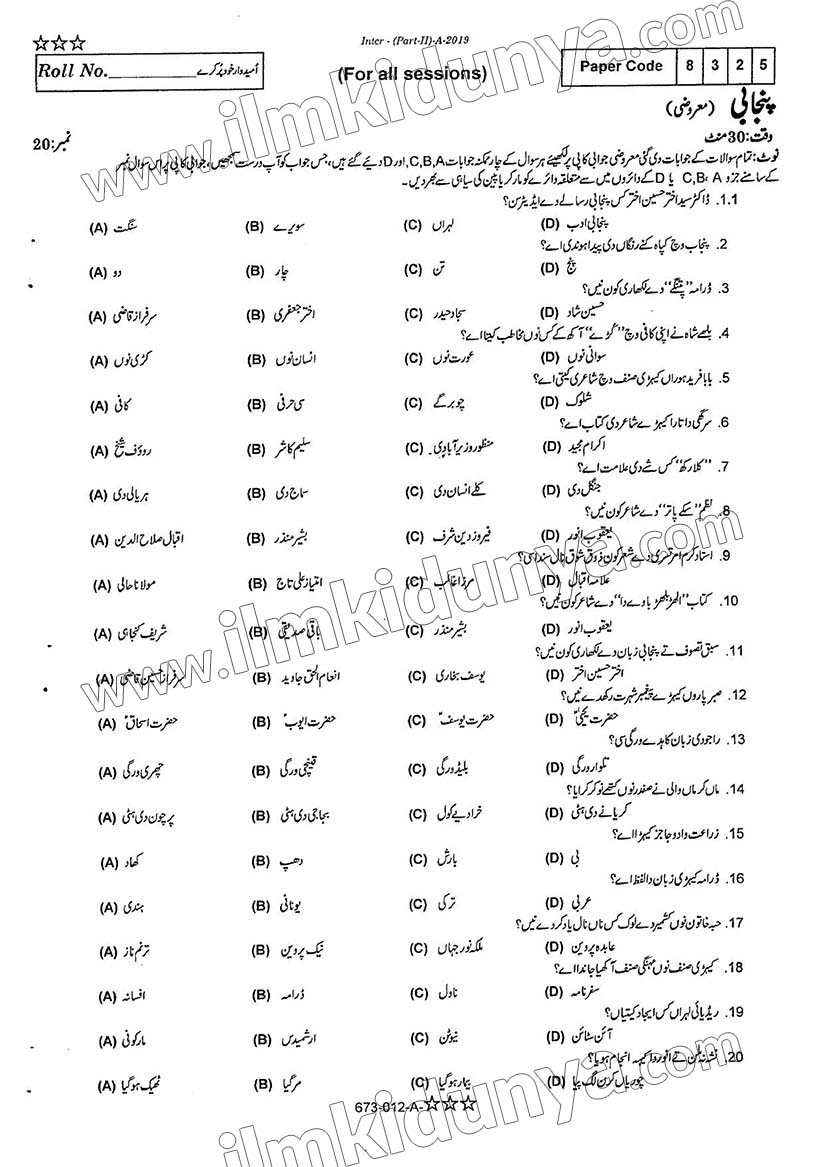 Inter - (Part-II)-A-2019
☆☆☆
Roll No.____________ اُمیدوار خود پُر کرے
(For all sessions)
Paper Code 8 3 2 5
پنجابی (معروضی)
وقت:30 منٹ نمبر:20
نوٹ: تمام سوالات کے جوابات دی گئی معروضی جوابی کاپی پر لکھیئے ہر سوال کے چار ممکنہ جوابات C,B,A اور D دیئے گئے ہیں، جس جواب کو آپ درست سمجھیں، جوابی کاپی پر اس سوال نمبر
کے سامنے جزو C,B، A یا D کے دائروں میں سے متعلقہ دائرے کو مار کر یا پین کی سیاہی سے بھر دیں۔
1.1 ڈاکٹر سید اختر حسین اختر کس پنجابی رسالے دے ایڈیٹر سن؟
(A) سنگت (B) سویرے (C) لہراں (D) پنجابی ادب
2. پنجاب وچ کپاہ کنے رنگاں دی پیدا ہوندی اے؟
(A) دو (B) چار (C) تن (D) پنج
3. ڈرامہ ”پتنگے“ دے لکھاری کون نیں؟
(A) سرفراز قاضی (B) اختر جعفری (C) سجاد حیدر (D) حسین شاد
4. بلھے شاہ نے اپنی کافی وچ ”کُڑے“ آکھ کے کس نوں مخاطب کیتا اے؟
(A) کڑی نوں (B) انسان نوں (C) عورت نوں (D) سوانی نوں
5. بابا فرید ہوراں کیہڑی صنف وچ شاعری کیتی اے؟
(A) کافی (B) سی حرفی (C) چوبرگے (D) شلوک
6. سرگھی دا تارا کیہڑے شاعر دی کتاب اے؟
(A) رؤف شیخ (B) سلیم کاشر (C) منظور وزیر آبادی۔ (D) اکرام مجید
7. ”کلا رکھ“ کس شے دی علامت اے؟
(A) ہریالی دی (B) سماج دی (C) کلے انسان دی (D) جنگل دی
8. نظم ”سکے پاتر“ دے شاعر کون نیں؟
(A) اقبال صلاح الدین (B) بشیر منذر (C) فیروز دین شرف (D) یعقوب انور
9. استاد کرم امرتسری دے شعر کون ذوق شوق نال سندا سی؟
(A) مولانا حالی (B) امتیاز علی تاج (C) مرزا غالب (D) علامہ اقبال
10. کتاب ”الھڑ بلھڑ باوے دا“ دے شاعر کون نیں؟
(A) شریف کنجاہی (B) باقی صدیقی (C) بشیر منذر (D) یعقوب انور
11. سبق تصوف تے پنجابی زبان دے لکھاری کون نیں؟
(A) سرفراز حسین قاضی (B) انعام الحق جاوید (C) یوسف بخاری (D) اختر حسین اختر
12. صبر پاروں کیہڑے پیغمبر شہرت رکھدے نیں؟
(A) حضرت اسحاقؑ (B) حضرت ایوبؑ (C) حضرت یوسفؑ (D) حضرت یحییٰؑ
13. راجو دی زبان کاہدے ورگی سی؟
(A) چھری ورگی (B) قینچی ورگی (C) بلیڈ ورگی (D) تلوار ورگی
14. ماں کرماں والی نے صفدر نوں کتھے نوکر کرایا؟
(A) پرچون دی ہٹی (B) بجاجی دی ہٹی (C) خرادیے کول (D) کریانے دی ہٹی
15. زراعت دا دوجا جز کیہڑا اے؟
(A) کھاد (B) دھپ (C) بارش (D) بی
16. ڈرامہ کیہڑی زبان دا لفظ اے؟
(A) ہندی (B) یونانی (C) ترکی (D) عربی
17. حبہ خاتون نوں کشمیر دے لوک کس ناں نال یاد کردے نیں؟
(A) ترنم ناز (B) نیک پروین (C) ملکہ نور جہاں (D) عابدہ پروین
18. کیہڑی صنف نوں مہنگی صنف آکھیا جاندا اے؟
(A) افسانہ (B) ڈرامہ (C) ناول (D) سفرنامہ
19. ریڈیائی لہراں کس ایجاد کیتیاں؟
(A) مارکونی (B) ارشمیدس (C) نیوٹن (D) آئن سٹائن
20. نشہ نہ کرن تے انور دا کیہہ انجام ہویا؟
(A) ٹھیک ہوگیا (B) مر گیا (C) بیمار ہوگیا (D) چوریاں کرن لگ پیا
673-012-A-☆☆☆
www.ilmkidunya.com
www.ilmkidunya.com
www.ilmkidunya.com